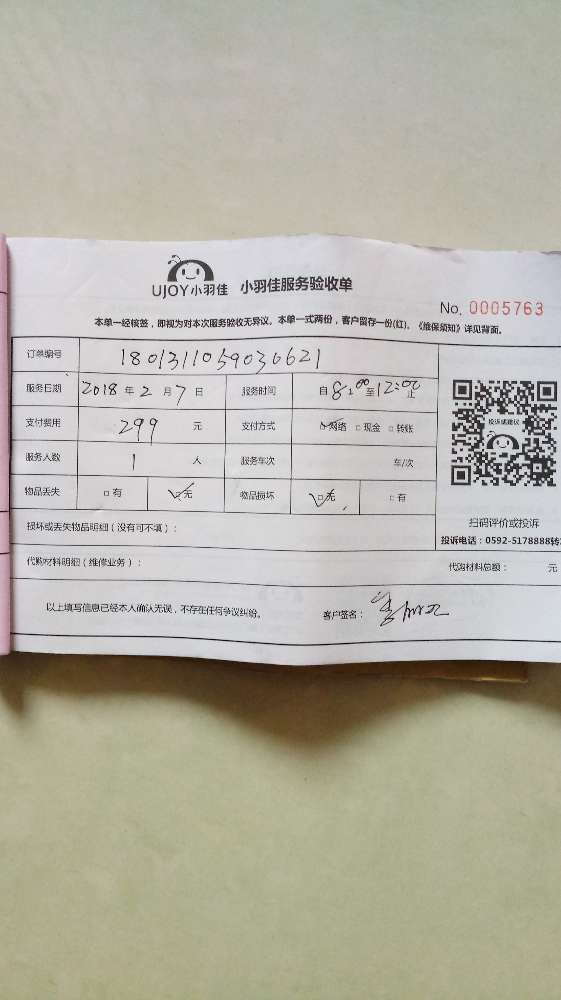 UJOY小羽佳 小羽佳服务验收单
No. 0005763
本单一经核签，即视为对本次服务验收无异议。本单一式两份，客户留存一份(红)。《维保须知》详见背面。
订单编号 1801311059030621
服务日期 2018年2月7日 服务时间 自8:00至12:00止
支付费用 299元 支付方式 网络 □现金 □转账
服务人数 1人 服务车次 车/次
物品丢失 □有 □无 物品损坏 □无 □有
投诉或建议
扫码评价或投诉
投诉电话：0592-5178888转
损坏或丢失物品明细（没有可不填）：
代购材料明细（维修业务）： 代购材料总额： 元
以上填写信息已经本人确认无误，不存在任何争议纠纷。 客户签名：